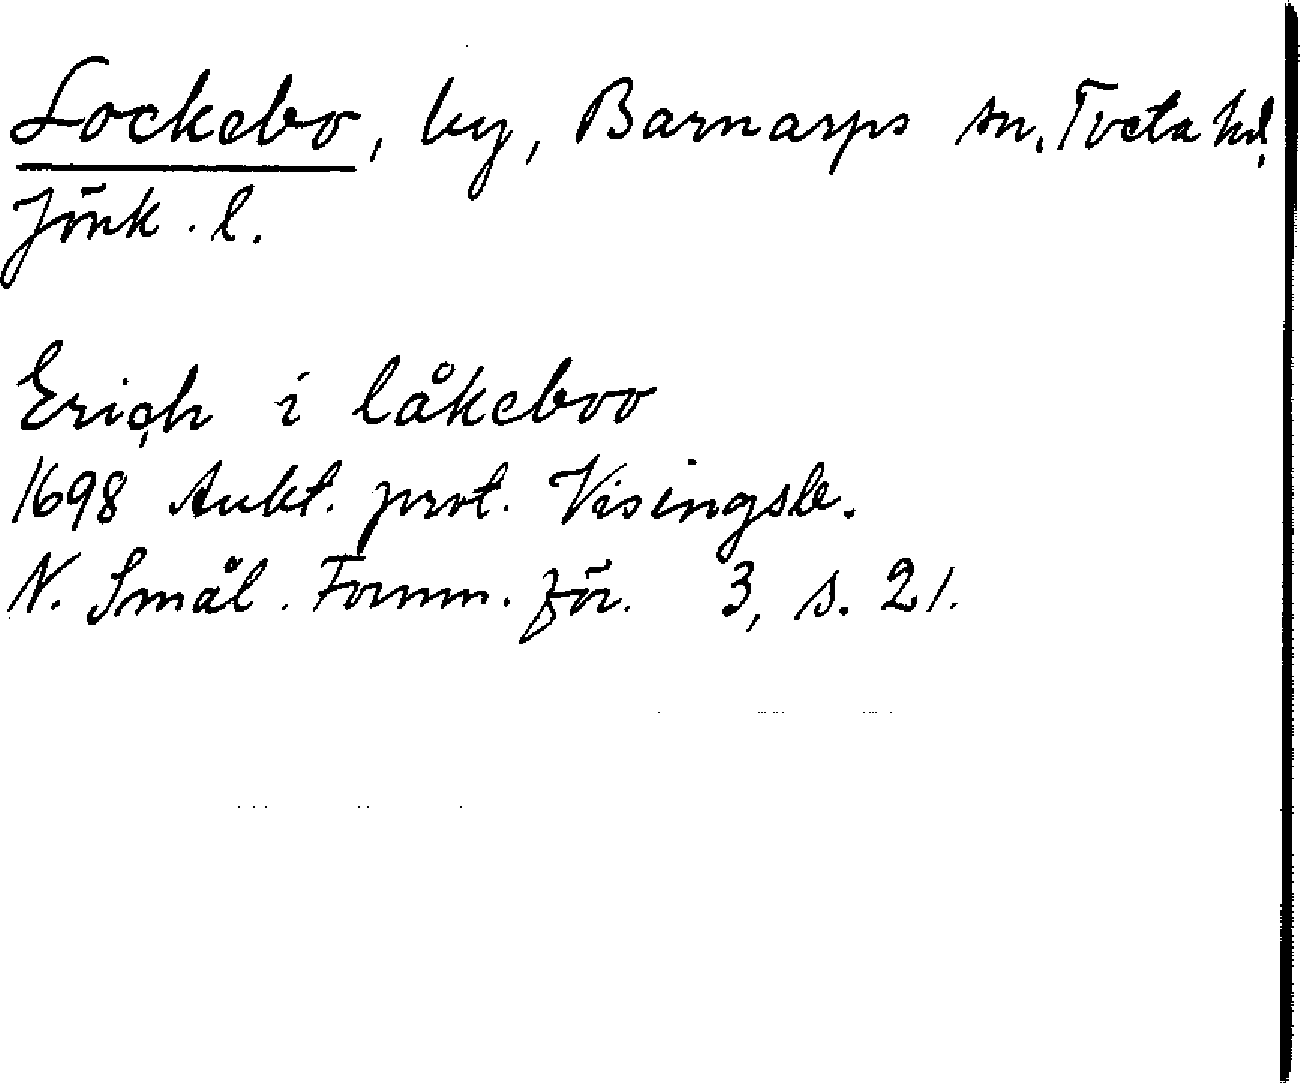 Lockebo, by, Barnarps sn. Tveta hd.
Jönk. l.
Erich i låkeboo
1698 Aukt. prot. Visingsb.
N. Smål. Fornm. för. 3, s. 21.